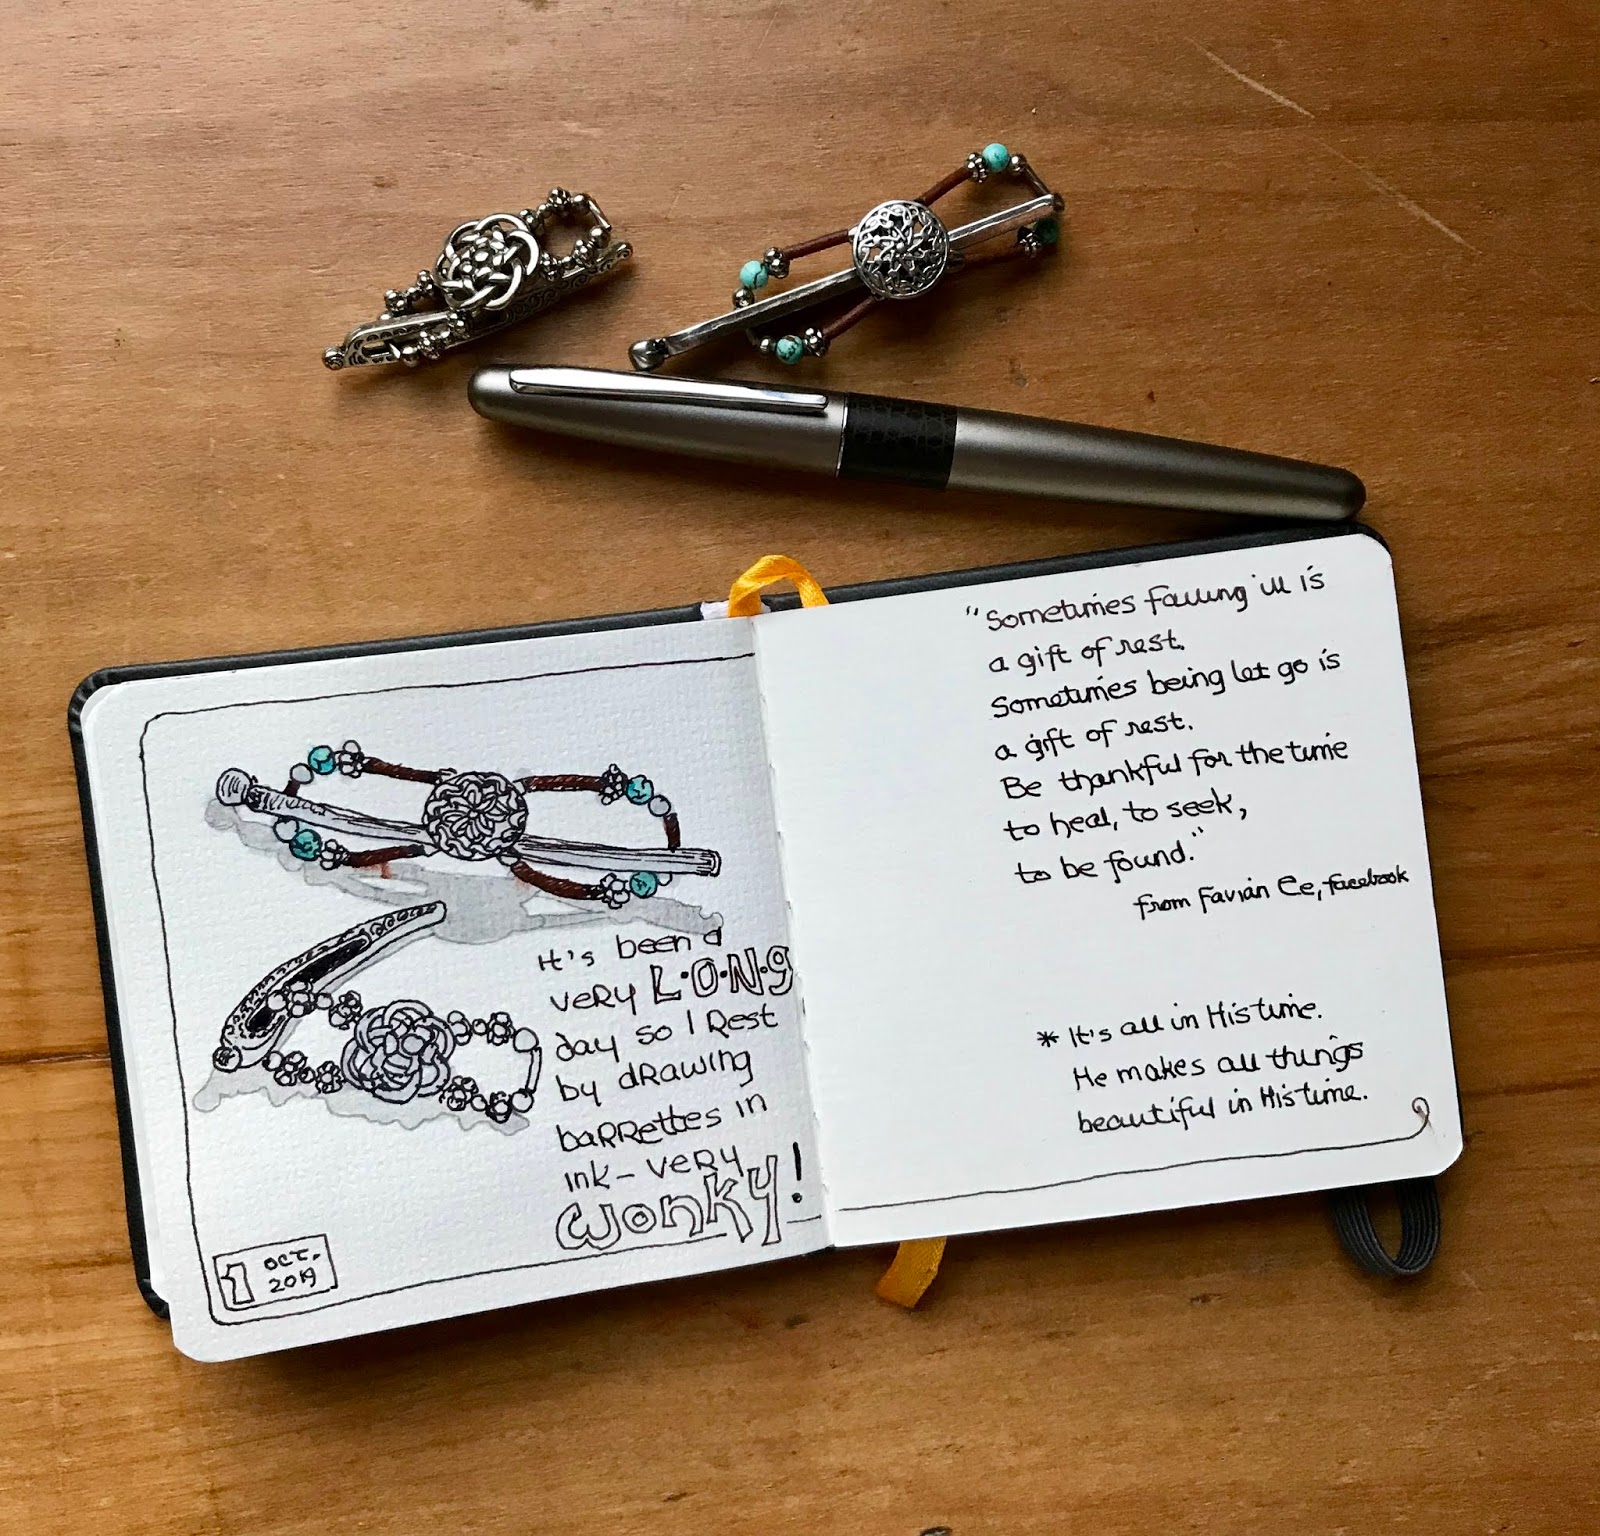 It's been a
very L·O·N·G
day so I Rest
by dRawing
baRRettes in
ink – veRy
wonky!
1 OCT.
2019
"Sometimes falling ill is
a gift of rest.
Sometimes being let go is
a gift of rest.
Be thankful for the time
to heal, to seek,
to be found."
from Favian Ee, facebook
* It's all in His time.
He makes all things
beautiful in His time.